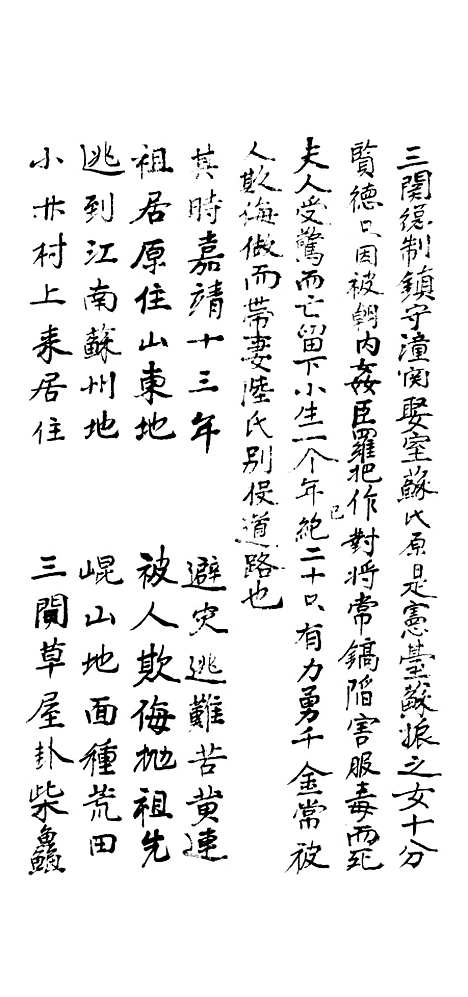 三関總制鎮守潼関娶室蘇氏原是憲臺蘇娘之女十分
賢德只因被朝内姦臣羅把作對将常鎬陷害服毒而死
夫人受驚而亡留下小生一个年紀已二十只有力勇千金常被
人欺侮做而帶妻陸氏别役道路也
其時嘉靖十三年 避灾逃難苦黄連
祖居原住山東地 被人欺侮抛祖先
逃到江南蘇州地 崐山地面種荒田
小井村上来居住 三間草屋卦柴